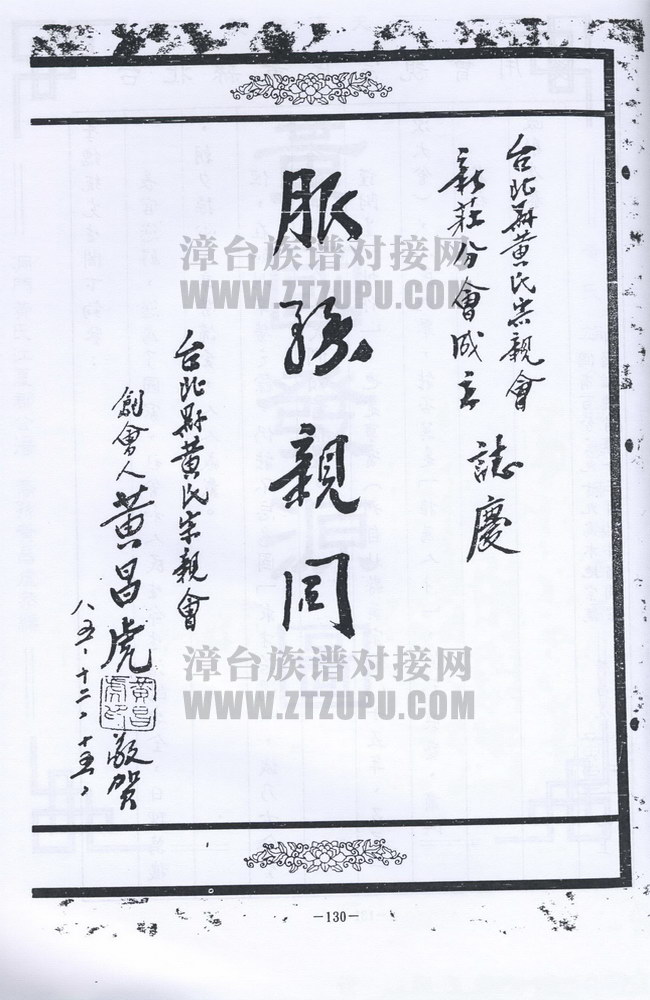 台北縣黃氏宗親會
新莊分會成立 誌慶
脈親同
台北縣黃氏宗親會
創會人 黃昌虎 敬賀
黃昌虎印
八五、十二、十五、
漳台族谱对接网
WWW.ZTZUPU.COM
漳台族谱对接网
WWW.ZTZUPU.COM
—130—